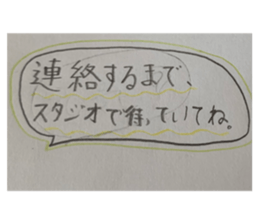 連絡するまで、
スタジオで待っていてね。